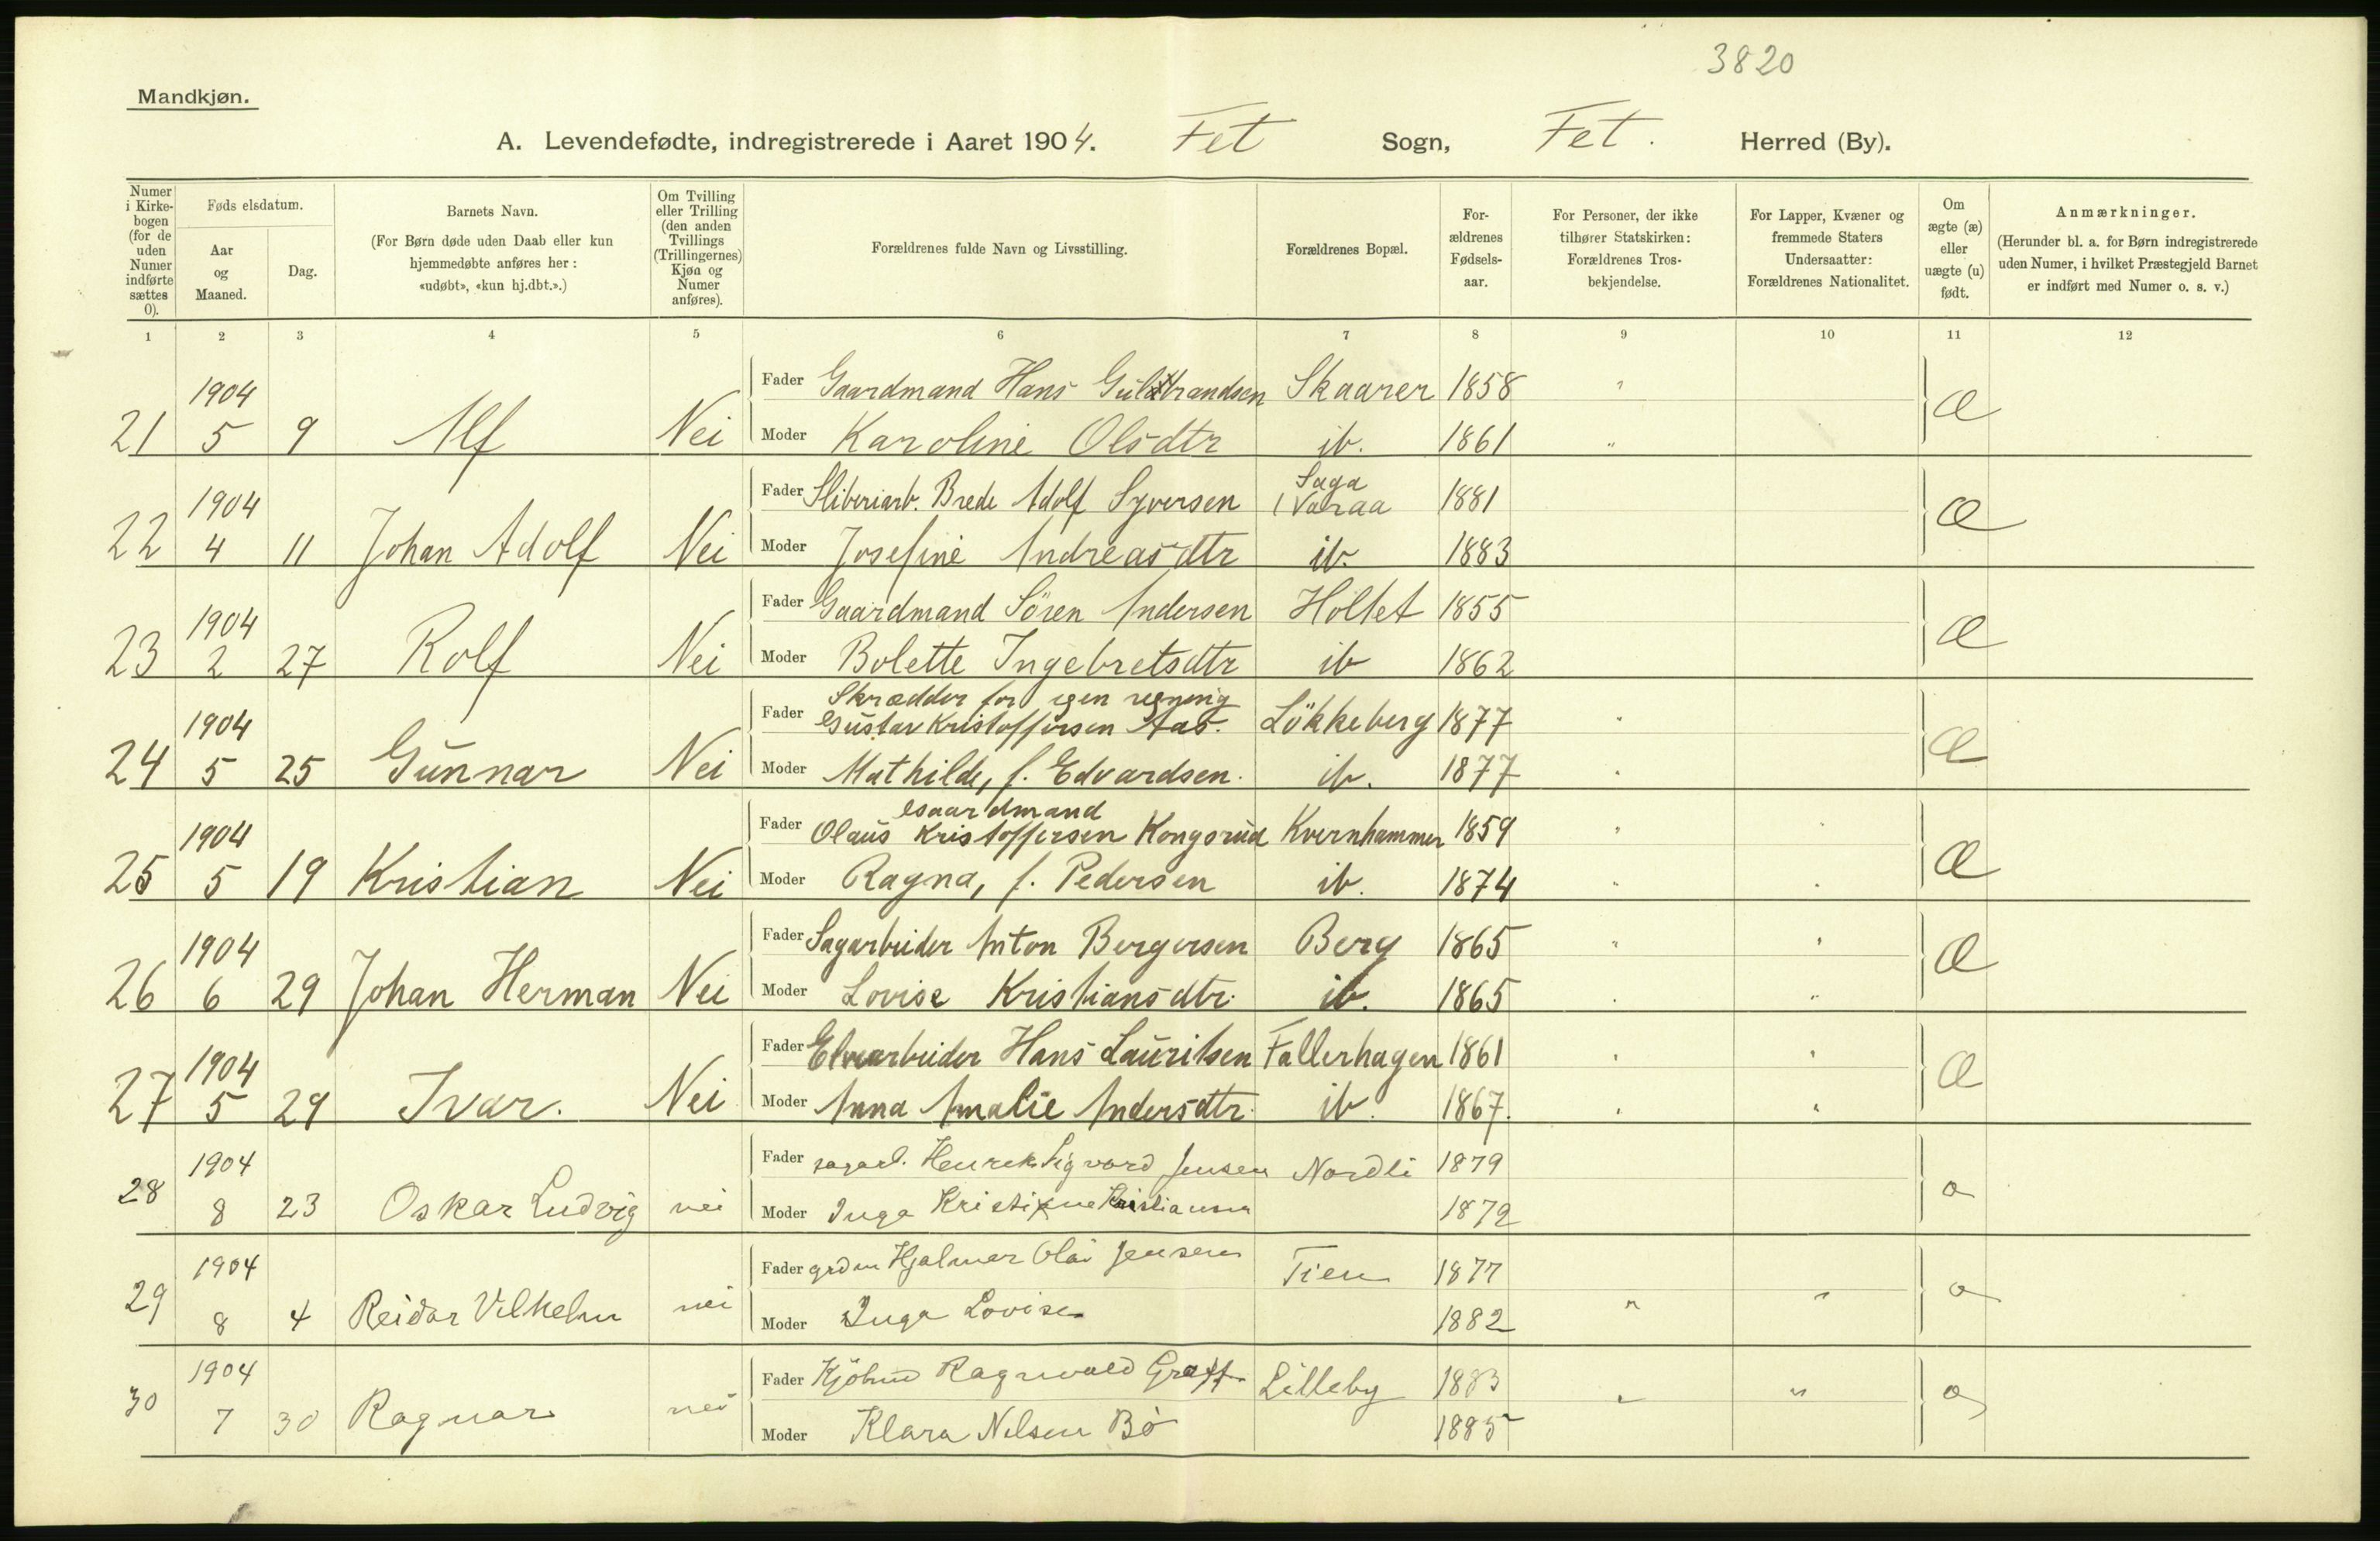 3820
Mandkjøn.
A. Levendefødte, indregistrerede i Aaret 1904. Fet Sogn, Fet. Herred (By).
Numer i Kirkebogen (for de uden Numer indførte sættes 0).
Føds elsdatum.
Aar og Maaned.
Dag.
Barnets Navn.
(For Børn døde uden Daab eller kun hjemmedøbte anføres her: «udøbt», «kun hj.dbt.».)
Om Tvilling eller Trilling (den anden Tvillings (Trillingernes) Kjøn og Numer anføres).
Forældrenes fulde Navn og Livsstilling.
Forældrenes Bopæl.
Forældrenes Fødselsaar.
For Personer, der ikke tilhører Statskirken: Forældrenes Trosbekjendelse.
For Lapper, Kvæner og fremmede Staters Undersaatter: Forældrenes Nationalitet.
Om ægte (æ) eller uægte (u) født.
Anmærkninger.
(Herunder bl. a. for Børn indregistrerede uden Numer, i hvilket Præstegjeld Barnet er indført med Numer o. s. v.)
1 2 3 4 5 6 7 8 9 10 11 12
1904 Fader Gaardmand Hans Guldbrandsen Skaarer 1858 "
21 5 9 Alf Nei Moder Karoline Olsdtr ib. 1861 " Æ
Saga
1904 Fader Sliberiarb. Brede Adolf Syversen Varaa 1881
22 4 11 Johan Adolf Nei Moder Josefine Andreasdtr ib. 1883 Æ
1904 Fader Gaardmand Sören Andersen Holtet 1855
23 2 27 Rolf Nei Moder Bolette Ingebretsdtr ib 1862 Æ
Skrædder for egen regning
1904 Fader Gustav Kristoffersen Aas. Lökkeberg 1877
24 5 25 Gunnar Nei Moder Mathilde, f. Edvardsen. ib. 1877 Æ
Gaardmand
1904 Fader Olaus Kristoffersen Kongsrud Kvernhammer 1859
25 5 19 Kristian Nei Moder Ragna, f. Pedersen ib. 1874 Æ
1904 Fader Sagarbeider Anton Bergersen Berg 1865
26 6 29 Johan Herman Nei Moder Lovise Kristiansdtr. ib. 1865 Æ
1904 Fader Elvearbeider Hans Lauritsen Fallerhagen 1861
27 5 29 Ivar. Nei Moder Anna Amalie Andersdtr. ib. 1867. Æ
1904 Fader sagarb. Henrik Sigvard Jensen Nordli 1879
28 8 23 Oskar Ludvig nei Moder Inga Kristine Kristiansen 1879 æ
1904 Fader grdm Hjalmar Olai Jensen Tien 1877
29 8 4 Reidar Vilhelm nei Moder Inga Lovise 1882 " " æ
1904 Fader Ragnvald Graff Lilleby 1883 " "
30 7 30 Ragnar nei Moder Klara Nilsen Bö 1885 æ